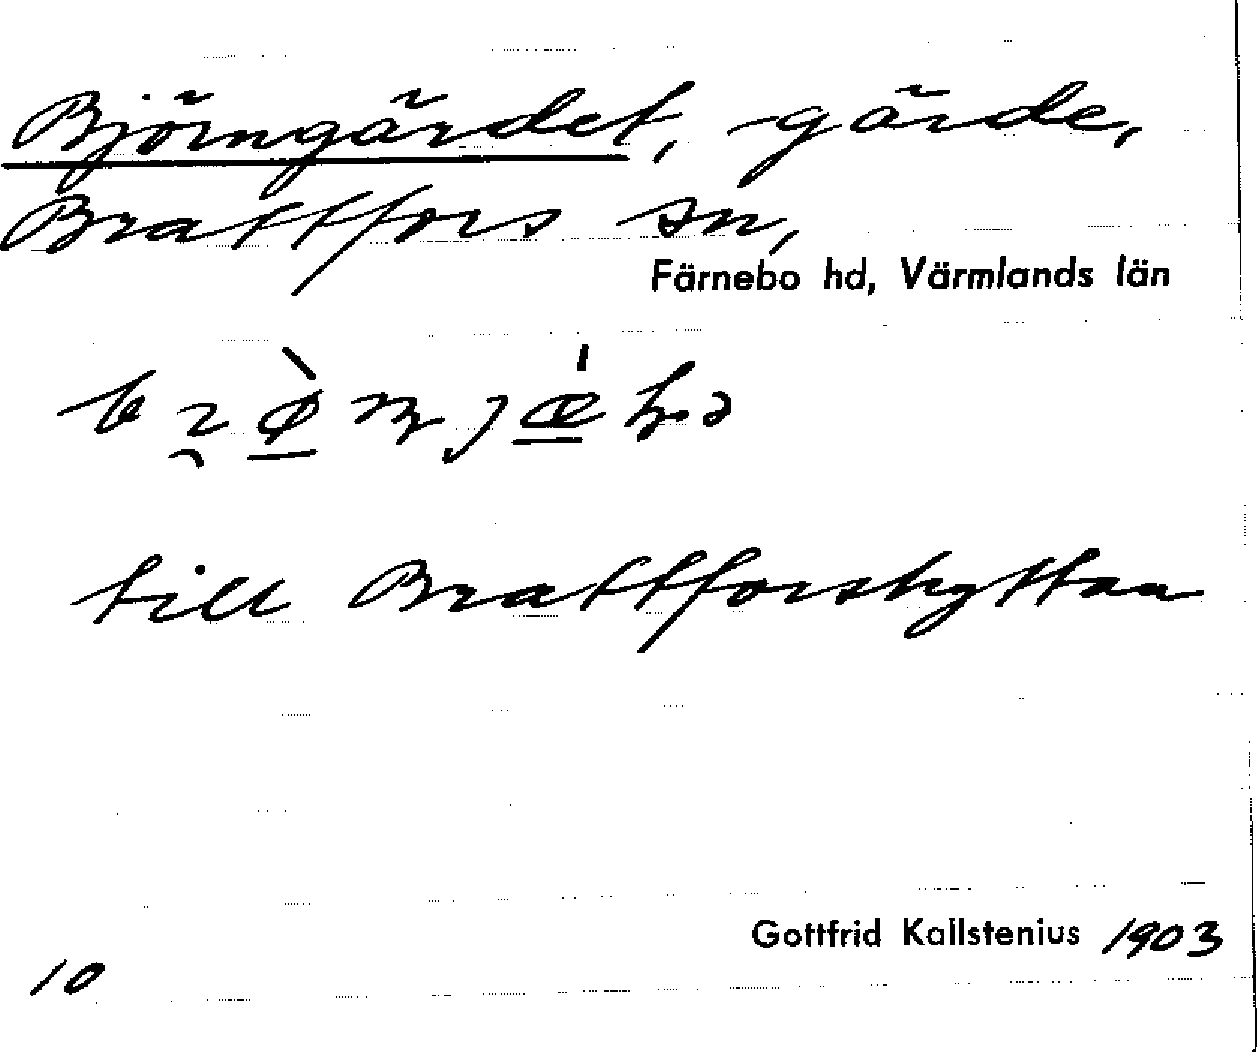 Björngärdet, -gärde,
Brattfors sn,
Färnebo hd, Värmlands län
till Brattforshyttan
Gottfrid Kallstenius 1903
10